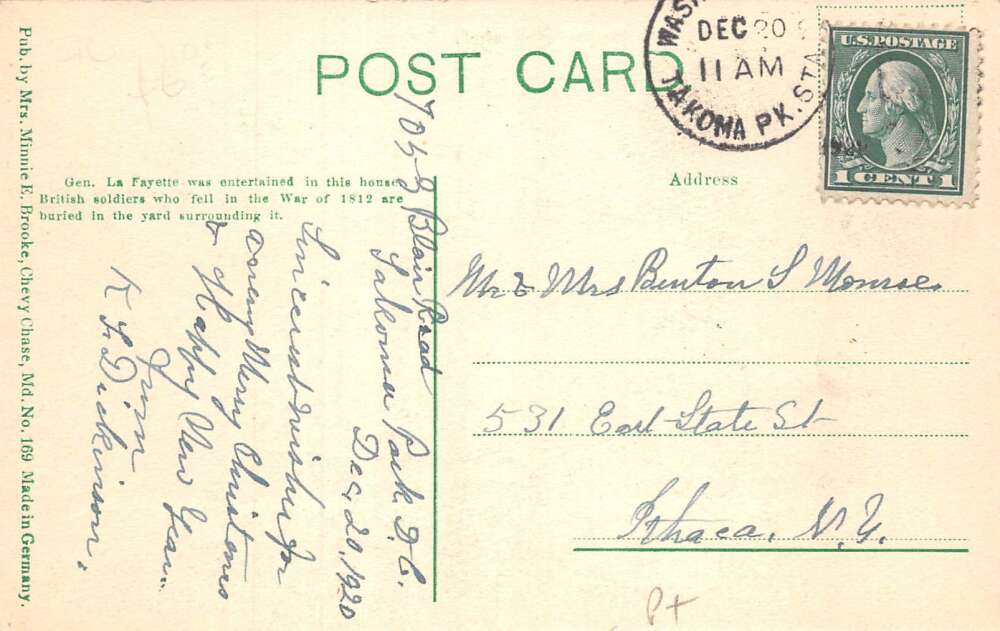 POST CARD
WAS
DEC 20
11 AM
TAKOMA PK. STA.
U.S. POSTAGE
1 CENT 1
Gen. La Fayette was entertained in this house
British soldiers who fell in the War of 1812 are
buried in the yard surrounding it.
Address
Pub. by Mrs. Minnie E. Brooke, Chevy Chase, Md. No. 169 Made in Germany.
Blair Road
Takoma Park D.C.
Dec. 20, 1920
Sincerest wishes for
a very Merry Christmas
& Happy New Year.
from
K L Dickinson.
Mr & Mrs Benton S Monroe.
531 East State St
Ithaca, N.Y.